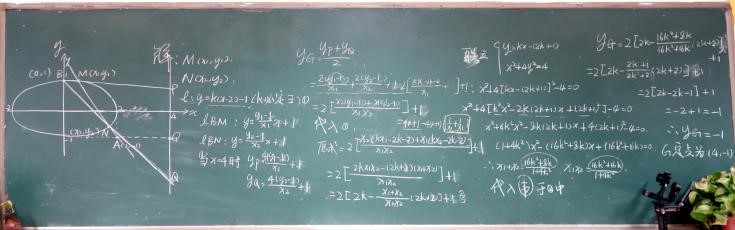 y
(0,1) B
M(x₁y₁)
P
2
2
4
x
(x₂y₂) N
-1
A(2,-1)
Q
解:
M(x₁y₁)
N(x₂y₂)
l:y=k(x-2)-1
lBM: y=\frac{y₁-1}{x₁}x+1
lBN: y=\frac{y₂-1}{x₂}x+1
当x=4时 y_P=\frac{4(y₁-1)}{x₁}+1
y_Q=\frac{4(y₂-1)}{x₂}+1
y_G=\frac{y_P+y_Q}{2}
代入①
原式=2[\frac{x₂(kx₁-2k-2)+x₁(kx₂-2k-2)}{x₁x₂}]+1
=2[\frac{2kx₁x₂-(2k+2)(x₁+x₂)}{x₁x₂}]+1
=2[2k-\frac{x₁+x₂}{x₁x₂}(2k+2)]+1
联立
y=kx-(2k+1)
x²+4y²=4
x²+4[kx-(2k+1)]²-4=0
x²+4[k²x²-2k(2k+1)x+(2k+1)²]-4=0
x²+4k²x²-8k(2k+1)x+4(2k+1)²-4=0
(1+4k²)x²-(16k²+8k)x+(16k²+16k)=0
∴x₁+x₂=\frac{16k²+8k}{1+4k²} x₁x₂=\frac{16k²+16k}{1+4k²}
y_G=2[2k-\frac{16k²+8k}{16k²+16k}(2k+2)]+1
=2[2k-\frac{2k+1}{2k+2}(2k+2)]+1
=2[2k-2k-1]+1
=-2+1=-1
∴y_G=-1
G定点为(4,-1)